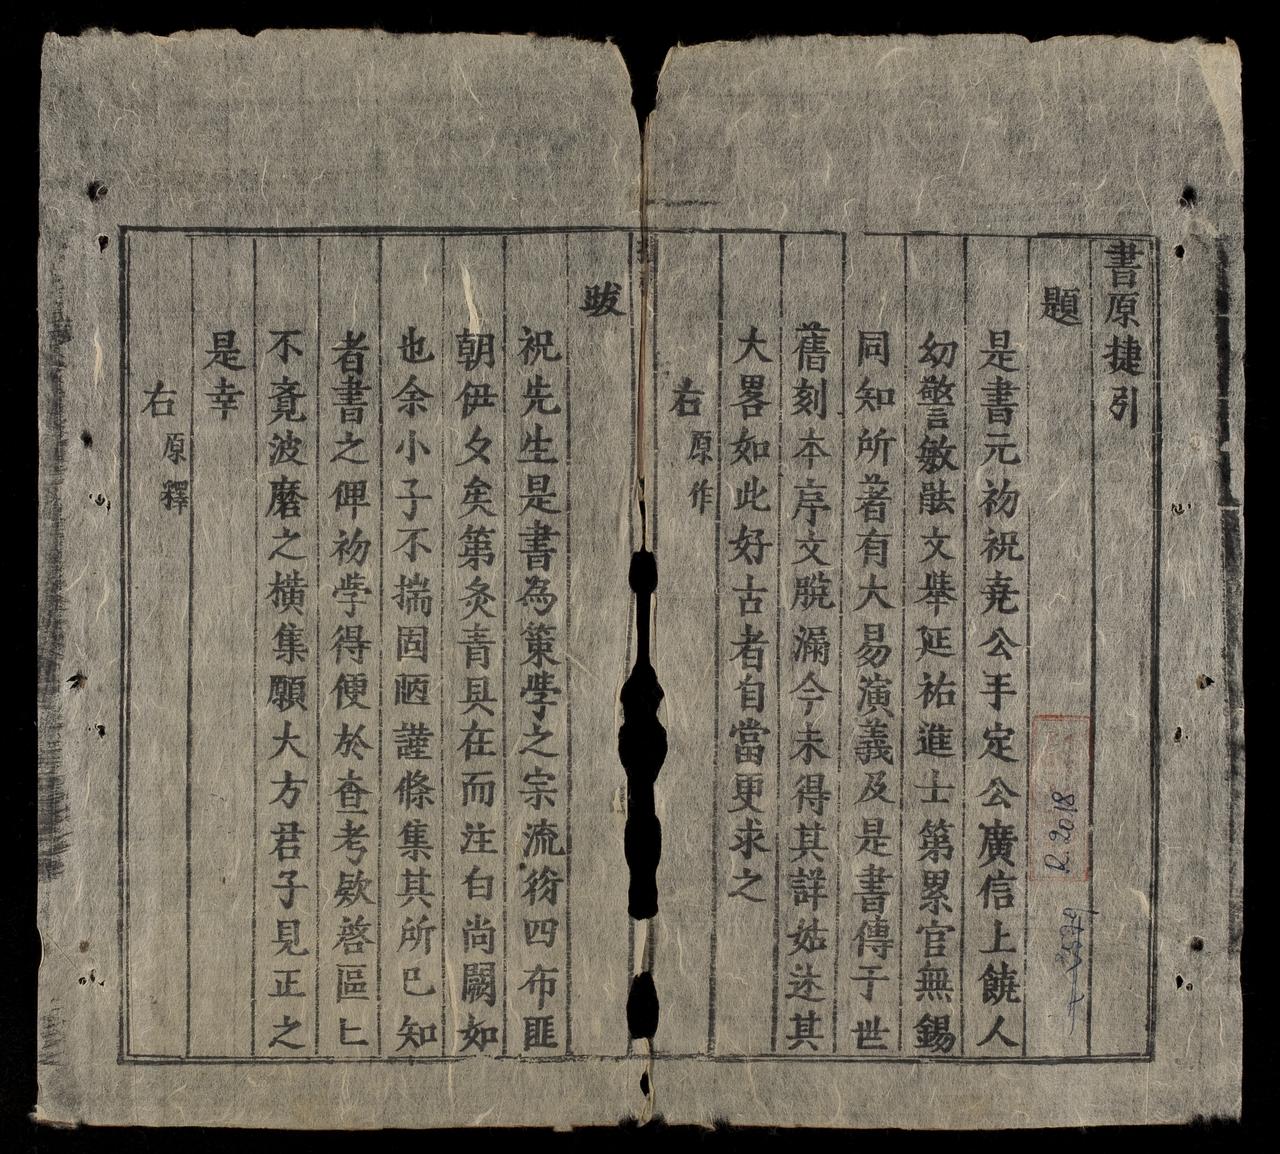 書原捷引
題
是書元初祝堯公手定公廣信上饒人
幼警敏能文舉延祐進士第累官無錫
同知所著有大易演義及是書傳于世
舊刻本序文脱漏今未得其詳姑述其
大畧如此好古者自當更求之
右原作
跋
祝先生是書為策學之宗流衍四布匪
朝伊夕矣第灸青具在而注白尚闕如
也余小子不揣固陋謹條集其所已知
者書之俾初學得便於查考欵啓區〻
不竟波磨之横集願大方君子見正之
是幸
右原釋
R.2018